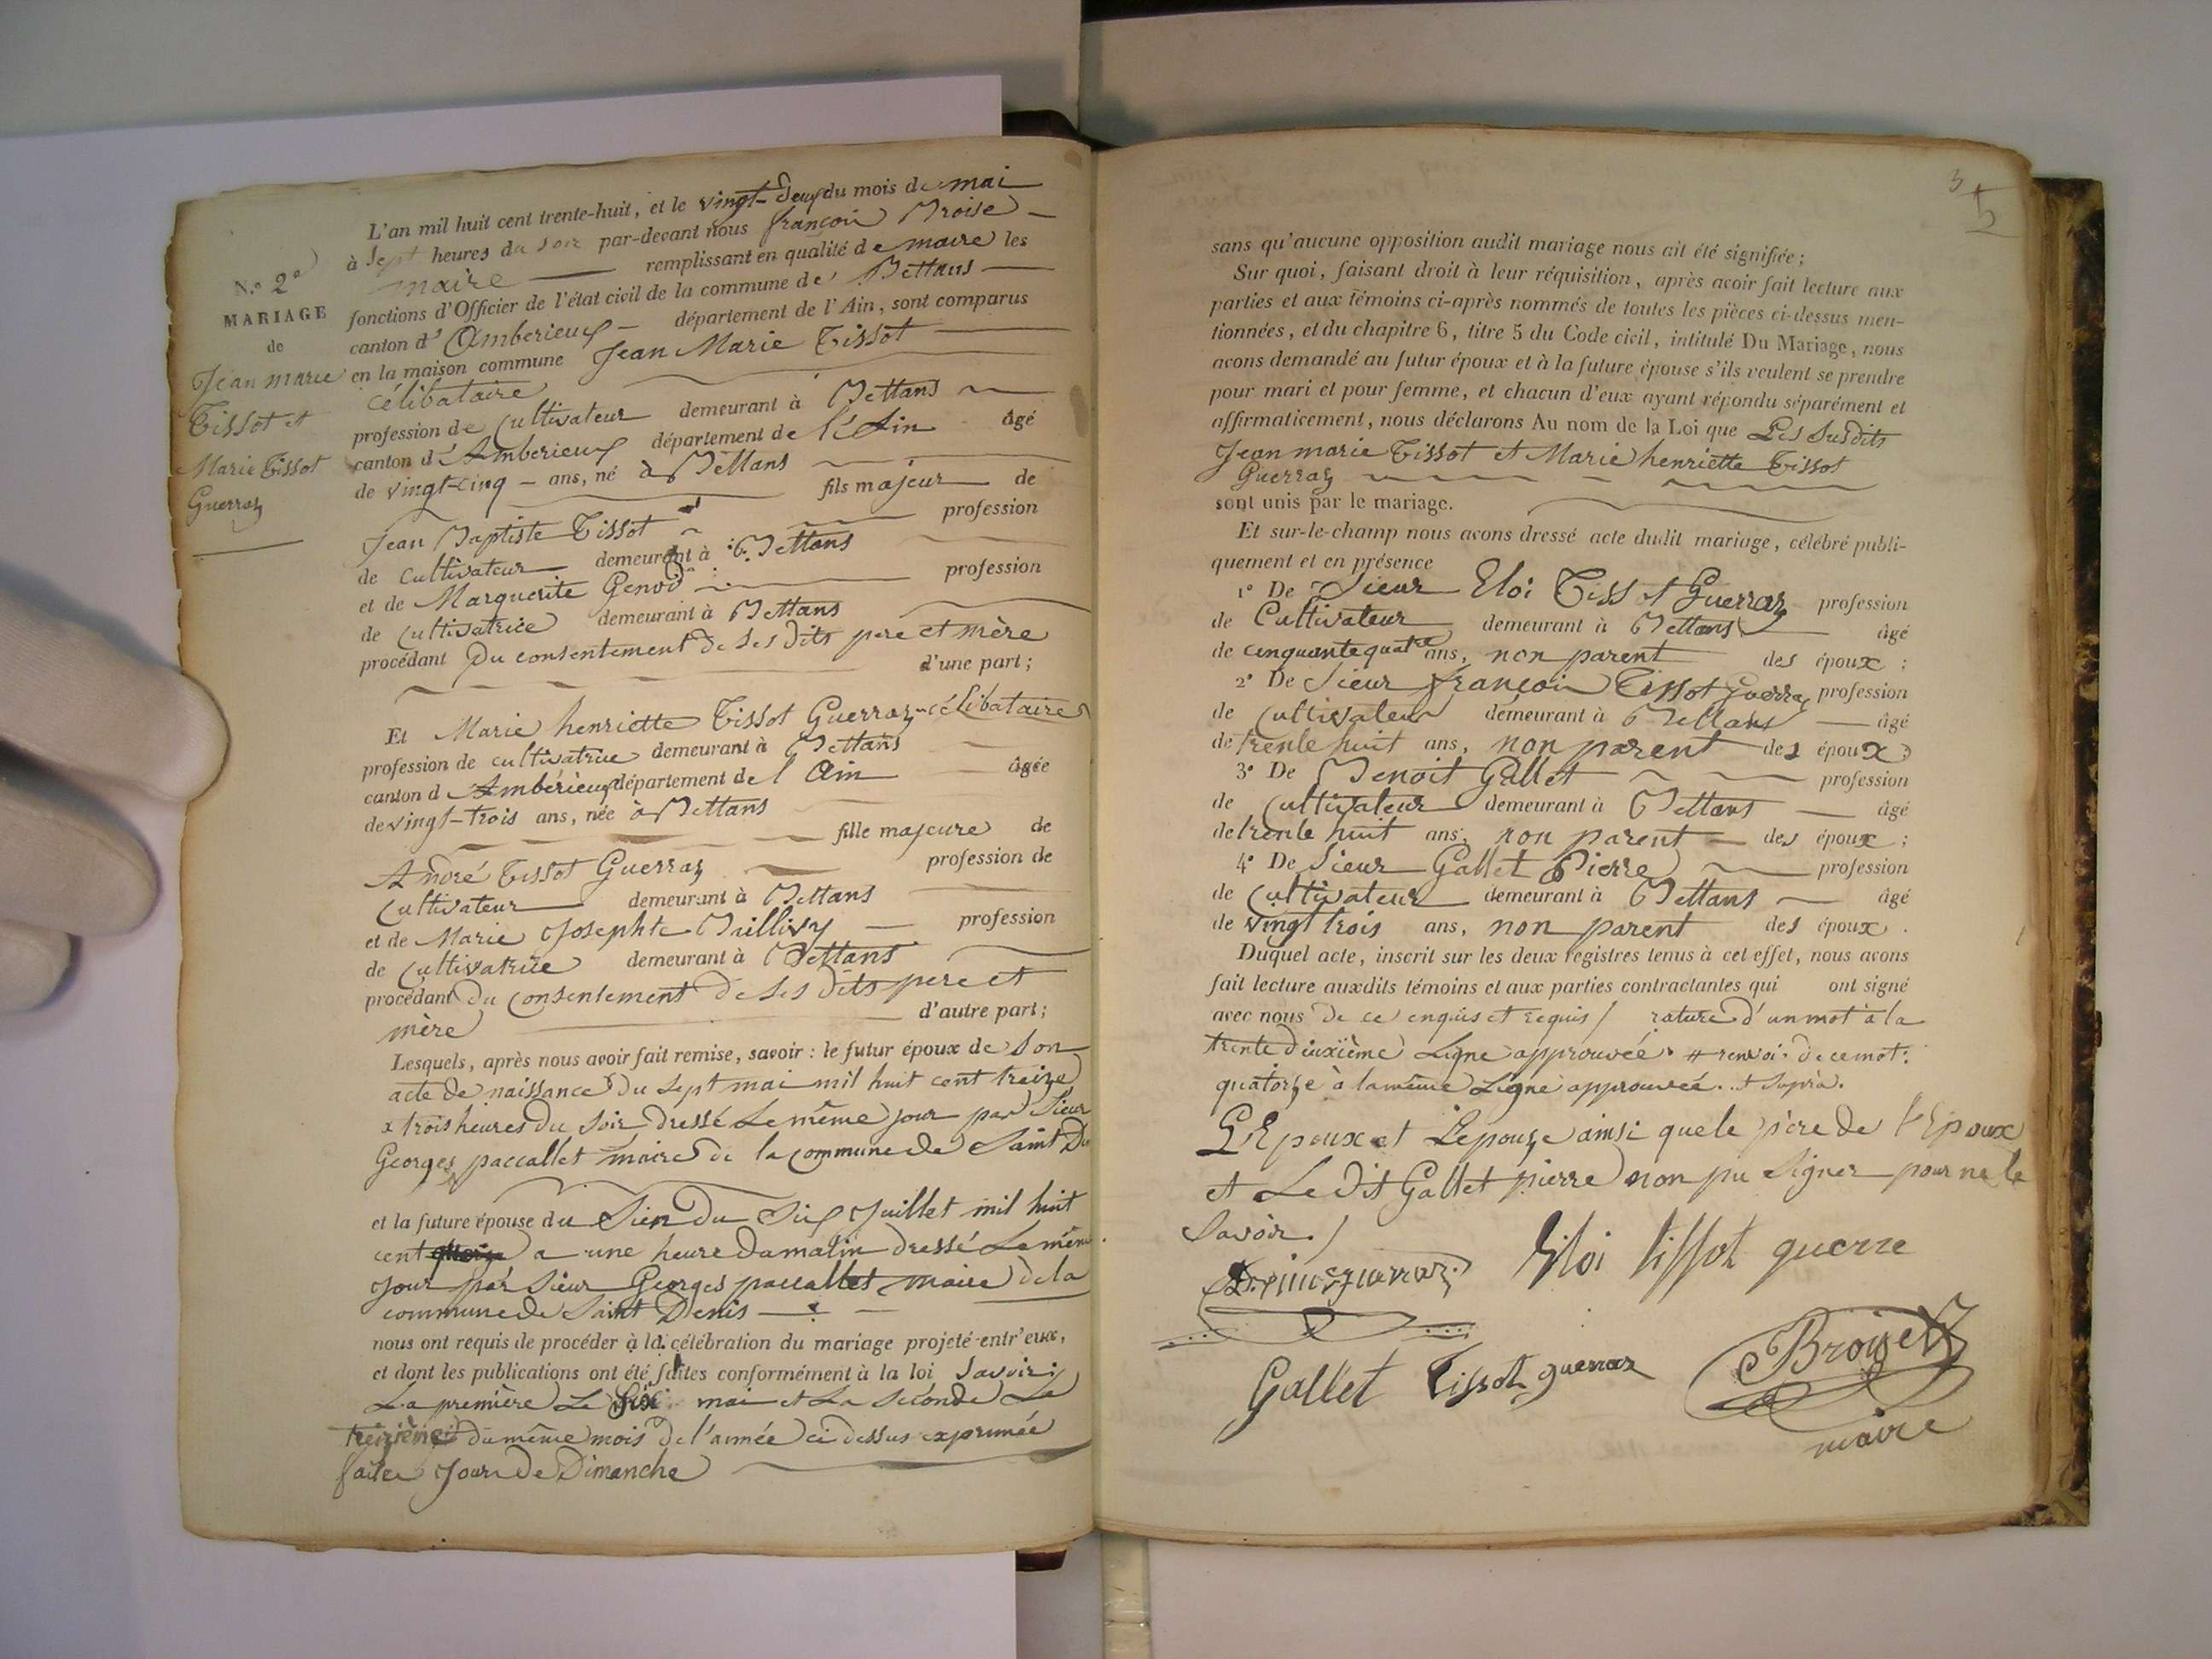 N.° 2e
MARIAGE
de
Jean marie
Tissot et
Marie Tissot
Guerraz
L'an mil huit cent trente-huit, et le vingt-deux du mois de mai
à Sept heures du soir par-devant nous françois Broise
maire remplissant en qualité de maire les
fonctions d'Officier de l'état civil de la commune de Bettans
canton d'Amberieux département de l'Ain, sont comparus
en la maison commune Jean Marie Tissot
célibataire
profession de Cultivateur demeurant à Bettans
canton d'Amberieux département de l'Ain âgé
de vingt-cinq ans, né à Bettans
fils majeur de
Jean Baptiste Tissot profession
de Cultivateur demeurant à Bettans
et de Marguerite Genod profession
de Cultivatrice demeurant à Bettans
procédant Du consentement De Ses Dits pere et mère
d'une part;
Et Marie henriette Tissot Guerraz célibataire
profession de cultivatrice demeurant à Bettans
canton d'Ambérieux département de l'Ain âgée
de vingt-trois ans, née à Bettans
fille majeure de
André Tissot Guerraz profession de
Cultivateur demeurant à Bettans
et de Marie Josephte Baillivy profession
de Cultivatrice demeurant à Bettans
procédant du Consentement De Ses Dits pere et
mère d'autre part;
Lesquels, après nous avoir fait remise, savoir: le futur époux de Son
acte de naissance Du Sept mai mil huit cent treize
x trois heures Du Soir Dressé Le même jour par Sieur
Georges paccallet maire de la commune de Saint De
et la future épouse du Sien Du Six Juillet mil huit
cent a une heure Damatin dressé Le même
Jour par Sieur Georges paccallet maire dela
commune de Saint Denis
nous ont requis de procéder à la célébration du mariage projeté entr'eux,
et dont les publications ont été faites conformément à la loi Savoir:
La première Le Six mai et La Séconde Le
treizième du même mois De l'année ci dessus exprimée
faites Jour De Dimanche
3
2
sans qu'aucune opposition audit mariage nous ait été signifiée;
Sur quoi, faisant droit à leur réquisition, après avoir fait lecture aux
parties et aux témoins ci-après nommés de toutes les pièces ci-dessus men-
tionnées, et du chapitre 6, titre 5 du Code civil, intitulé Du Mariage, nous
avons demandé au futur époux et à la future épouse s'ils veulent se prendre
pour mari et pour femme, et chacun d'eux ayant répondu séparément et
affirmativement, nous déclarons Au nom de la Loi que Les Susdits
Jean marie Tissot et Marie henriette Tissot
Guerraz
sont unis par le mariage.
Et sur-le-champ nous avons dressé acte dudit mariage, célébré publi-
quement et en présence
1° De Sieur Eloi Tissot Guerraz profession
de Cultivateur demeurant à Bettans âgé
de cinquante quatre ans, non parent des époux;
2° De Sieur françois Tissot guerraz profession
de Cultivateur demeurant à Bettans âgé
de trente huit ans, non parent des époux
3° De Benoit Gallet profession
de Cultivateur demeurant à Bettans âgé
de trente huit ans, non parent des époux;
4° De Sieur Gallet Pierre profession
de Cultivateur demeurant à Bettans âgé
de vingt trois ans, non parent des époux.
Duquel acte, inscrit sur les deux registres tenus à cet effet, nous avons
fait lecture auxdits témoins et aux parties contractantes qui ont signé
avec nous De ce enquis et requis / rature d'un mot à la
trente deuxième Ligne approuvée. # renvoi De ce mot:
quatorze à la même Ligne approuvée. et Supra.
L'Epoux et L'epouze ainsi que le père de l'Epoux
et Le Dit Gallet pierre non pu Signer pour ne le
Savoir./
Eloi tissot guerre
Gallet Tissot guerraz Broise
maire